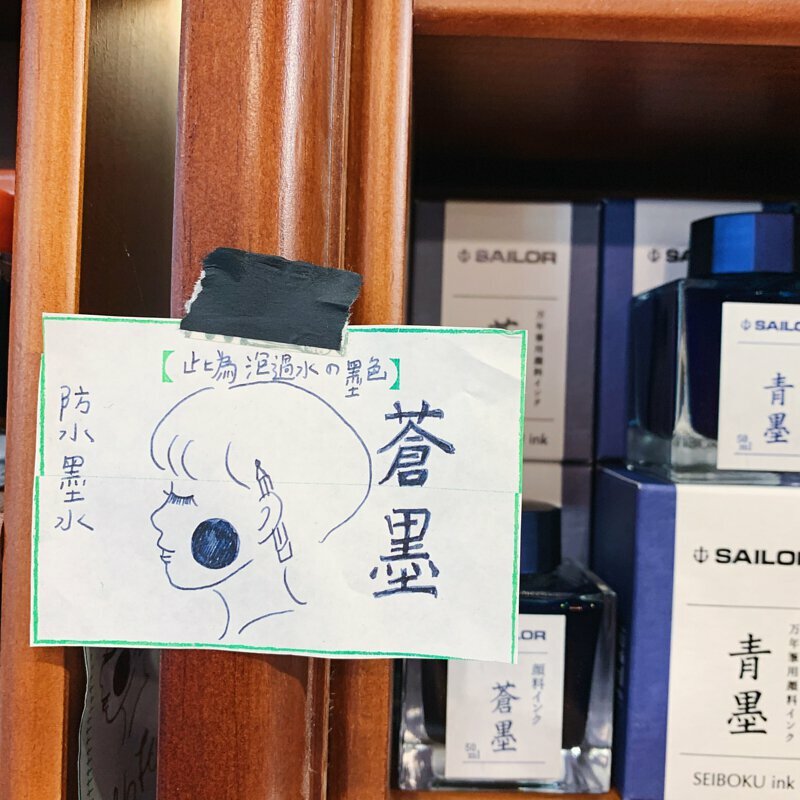 【此為泡過水の墨色】
蒼墨
防水墨水
SAILOR
万年筆用顔料インク
ink
SAILOR
青墨
50ml
顔料インク
蒼墨
50ml
SAILOR
青墨
万年筆用顔料インク
SEIBOKU ink